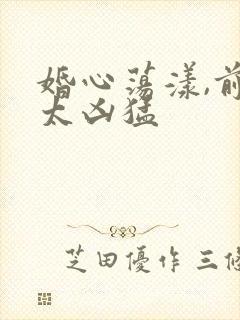 婚心荡漾,前
太凶猛
芝田優作 三條